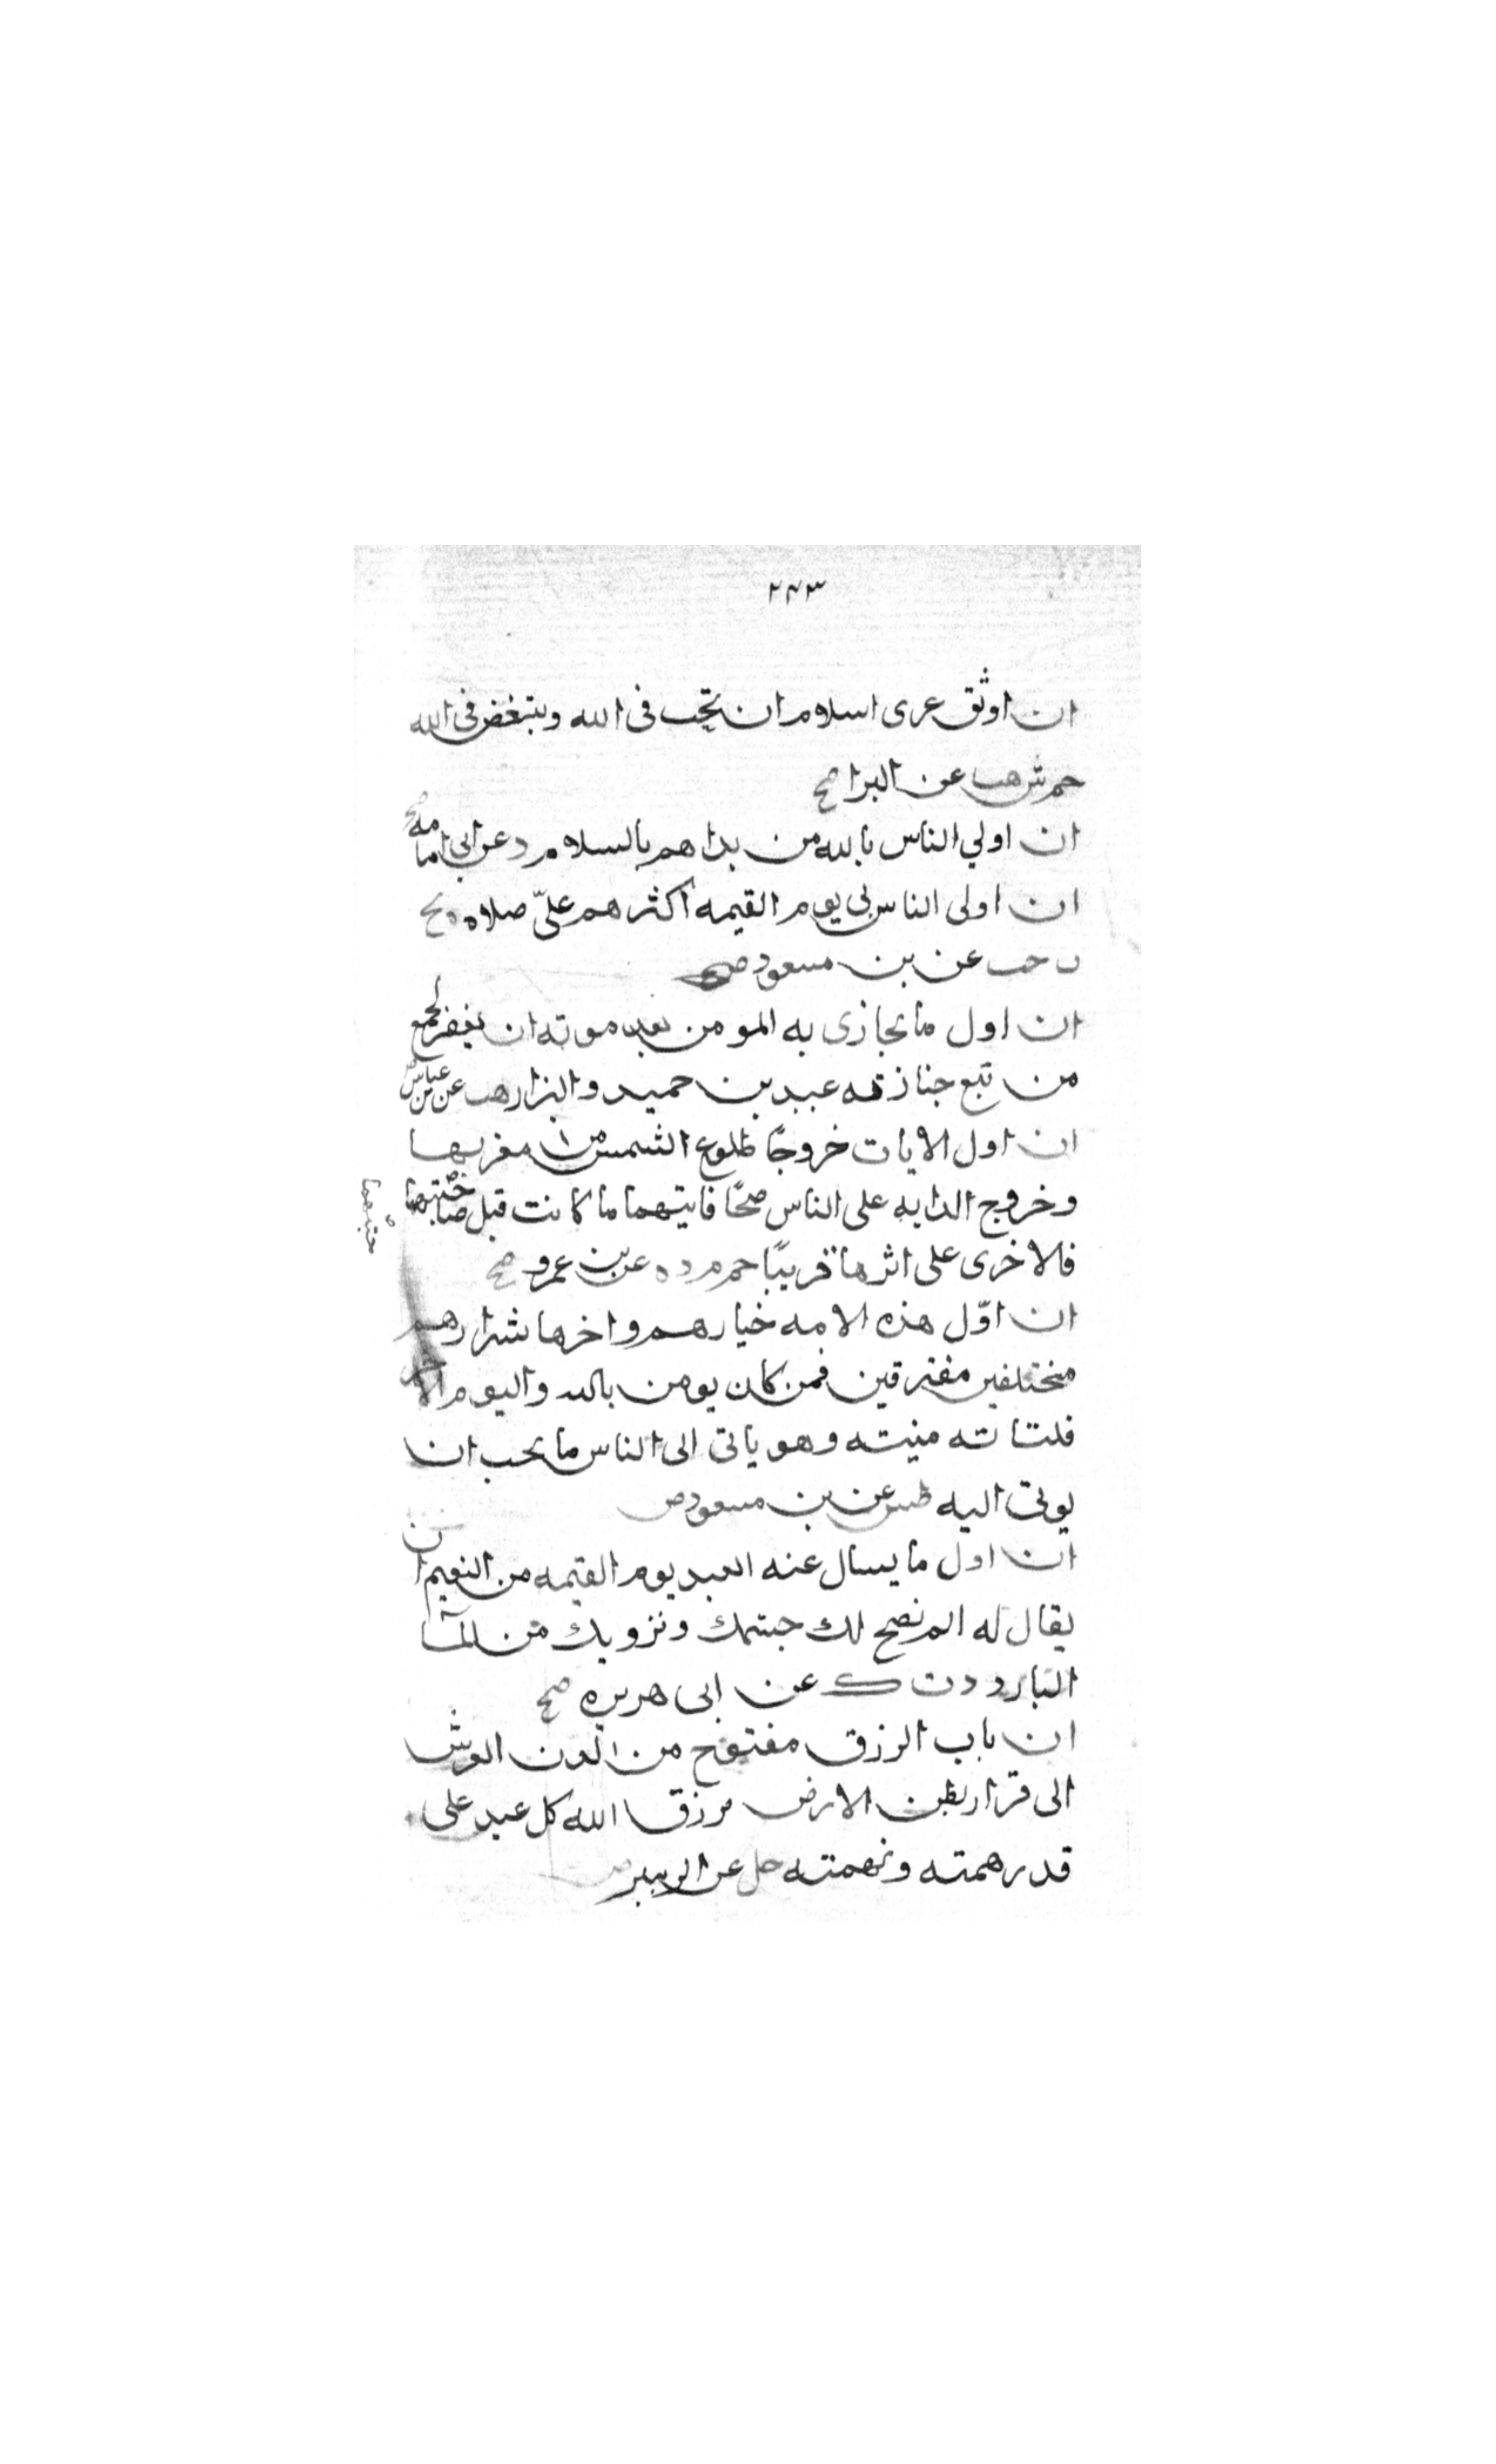 ٢٤٣
ان اوثق عرى اسلام ان تحب فى الله وتبغض فى الله
حم ش هب عن البرا صح
ان اولي الناس بالله من بداهم بالسلام د عن ابى امامه صح
ان اولى الناس بى يوم القيمه اكثرهم علىّ صلاه
حب عن بن مسعود صح
ان اول ما يجازى به المومن بعد موته ان يغفر لجميع
من تبع جنازته عبد بن حميد والبزار هب عن بن عباس
ان اول الايات خروجًا طلوع الشمس من مغربها
وخروج الدابه على الناس ضحًا فايتهما ما كانت قبل صاحبتها
فالاخرى على اثرها قريبًا حم م د ه عن بن عمرو صح
ان اوّل هذه الامه خيارهم واخرها شرارهم
مختلفين مفترقين فمن كان يومن بالله واليوم الاخر
فلتاته منيته وهو ياتى الى الناس ما يحب ان
يوتى اليه طس عن بن مسعود ض
ان اول ما يسال عنه العبد يوم القيمه من النعيم ان
يقال له الم نصح لك جسمك ونرويك من الماَ
البارد ت ك عن ابى هريره صح
ان باب الرزق مفتوح من لدن العرش
الى قرار بطن الارض يرزق الله كل عبد على
قدر همته ونهمته حل عن الزبير